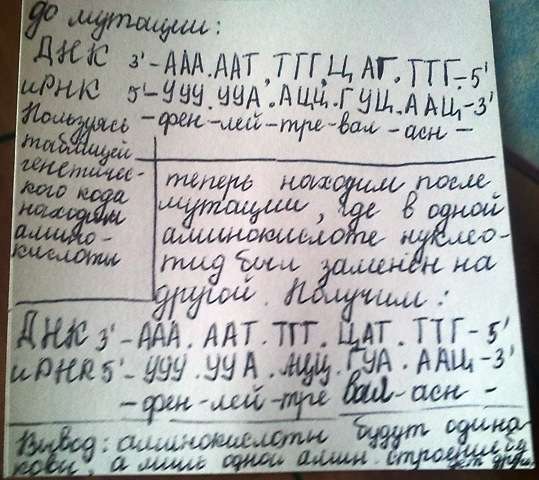 до мутации:
ДНК 3'-ААА.ААТ.ТГГ.Ц АГ.ТТГ-5'
иРНК 5'-УУУ.УУА.АЦЦ.ГУЦ.ААЦ-3'
-фен-лей-тре-вал-асн-
Пользуясь
таблицей
генетичес-
кого кода
находим
амино-
кислоты
теперь находим после
мутации, где в одной
аминокислоте нуклео-
тид был заменен на
другой. Получим:
ДНК 3'-ААА.ААТ.ТГГ.ЦАТ.ТТГ-5'
иРНК 5'-УУУ.УУА.АЦЦ.ГУА.ААЦ-3'
-фен-лей-тре вал-асн-
Вывод: аминокислоты будут одина
ковы, а лишь одной амин. строение